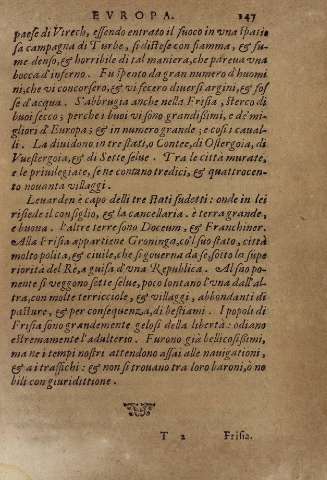 EVROPA. 247
paese di Virech, essendo entrato il fuoco in vna spatio
sa campagna di Turbe, si distese con fiamma, & fu-
me denso, & horribile di tal maniera, che pareua vna
bocca d'inferno. Fu spento da gran numero d'huomi
ni, che vi concorsero, & vi fecero diuersi argini, & fos
se d'acqua. S'abbrugia anche nella Frisia, sterco di
buoi secco; perche i buoi vi sono grandissimi, e de' mi-
gliori d'Europa; & in numero grande; e cosi i caual-
li. La diuidono in tre stati, o Contee, di Ostergoia, di
Vuestergoia, & di Sette selue. Tra le città murate,
e le priuilegiate, se ne contano tredici, & quattrocen-
to nouanta villaggi.
Leuarden è capo delli tre stati sudetti: onde in lei
risiede il consiglio, & la cancellaria. è terra grande,
e buona. l'altre terre sono Doceum, & Franchiner.
Alla Frisia appartiene Groninga, co'l suo stato, città
molto polita, & ciuile, che si gouerna da se, sotto la supe
riorità del Rè, a guisa d'vna Republica. Al suo po-
nente si veggono sette selue, poco lontano l'vna dall'al-
tra, con molte terricciole, & villaggi, abbondanti di
pasture, & per consequenza, di bestiami. I popoli di
Frisia sono grandemente gelosi della libertà: odiano
estremamente l'adulterio. Furono già bellicosissimi,
ma ne i tempi nostri attendono assai alle nauigationi,
& a i traffichi: & non si trouano tra loro baroni, ò no
bili con giuridittione.
T 2 Frisia.